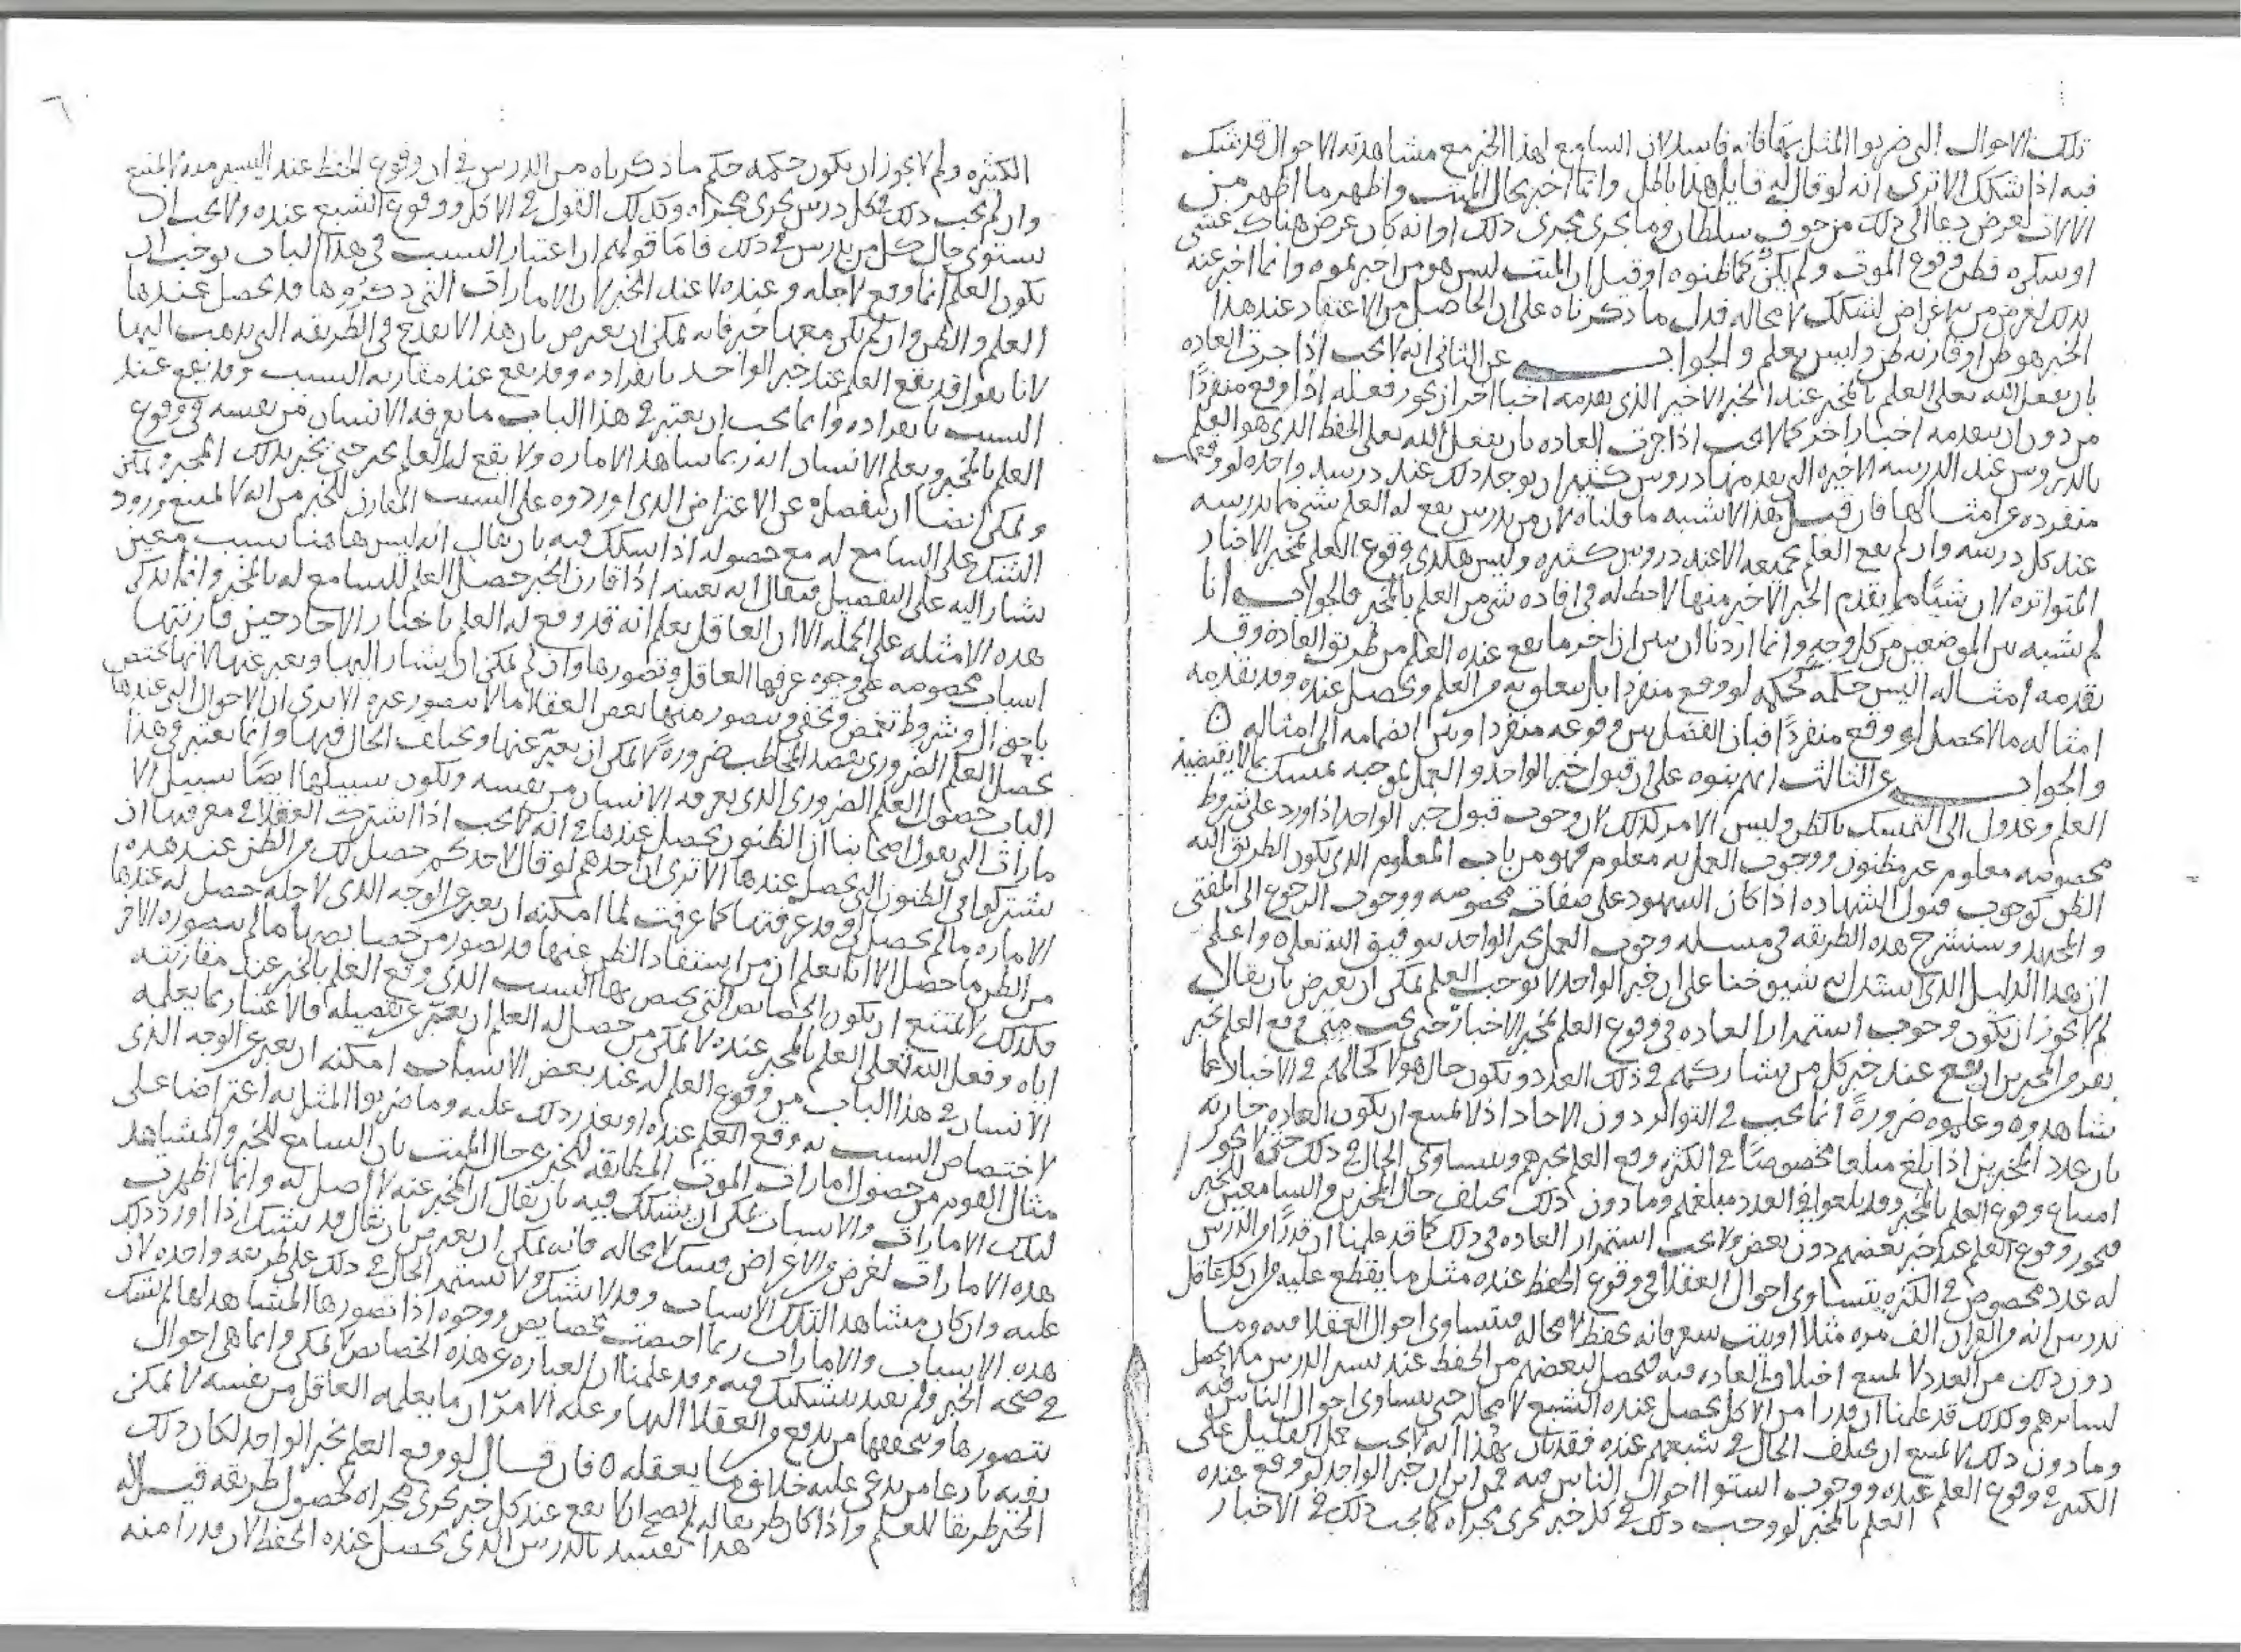 تلك الاحوال التي ضربوا المثل بها فانه فاسد لان السامع لهذا الخبر مع مشاهدته الاحوال قد شك
فيه اذا شكك الا ترى انه لو قال له قايل هذا باطل وانما اخبر بحال الميت واظهر ما اظهر من
الالات لغرض دعا الى ذلك من خوف سلطان وما يجرى مجرى ذلك او انه كان عرض هناك غشي
او سكره فظن وقوع الموت ولم يكن كما ظنوه او قيل ان الميت ليس هو من اخبر بموته وانما اخبر عنه
بذلك لغرض من الاغراض لشكك لا محاله فدل ما ذكرناه على ان الحاصل من الاعتقاد عند هذا
الخبر هو ظن او مقارنه ظن وليس بعلم والجواب عن الثاني انه لا يجب اذا جرت العاده
بان يفعل الله تعلى العلم بالمخبر عند الخبر الاخير الذي تقدمه اخبار اخر ان يجوز فعله اذا وقع منفردًا
من دون ان يتقدمه اخبار اخر كما لا يجب اذا جرت العاده بان يفعل الله تعلى الحفظ الذي هو العلم
بالدروس عند الدرسه الاخيره التي تقدمتها دروس كثيره ان يوجد ذلك عند درسه واحده لو وقعت
منفرده عن امثالها فان قيل هذا لا يشبه ما قلناه لان من يدرس يقع له العلم بشي مما يدرسه
عند كل درسه وان لم يقع العلم بجميعه الا عند دروس كثيره وليس هكذى وقوع العلم بمخبر الاخبار
المتواتره لان شيئًا مما يتقدم الخبر الاخير منها لا حظ له في افاده شي من العلم بالمخبر فالجواب انا
لم نشبه بين الموضعين من كل وجه وانما اردنا ان نبين ان اخر ما يقع عنده العلم من طريق العادة وقد
تقدمه امثاله ليس حكمه كحكمه لو وقع منفردا بل يتعلق به من العلم ويحصل عنده وقد تقدمه
امثاله ما لا يحصل لو وقع منفردًا فبان الفصل بين وقوعه منفردا وبين انضمامه الى امثاله ٥
والجواب عن الثالث انهم بنوه على ان قبول خبر الواحد والعمل بموجبه تمسك بما لا يقتضيه
العلم وعدول الى التمسك بالظن وليس الامر كذلك لان وجوب قبول خبر الواحد اذا ورد على شروط
مخصوصه معلوم غير مظنون ووجوب العمل به معلوم فهو من باب المعلوم الذي يكون الطريق اليه
الظن كوجوب قبول الشهاده اذا كان الشهود على صفات مخصوصه ووجوب الرجوع الى المفتي
وسنشرح هذه الطريقه في مسله وجوب العمل بخبر الواحد بتوفيق الله تعلى واعلم
ان هذا الدليل الذي استدل به شيوخنا على ان خبر الواحد لا يوجب العلم يمكن ان يعترض بان يقال
لم لا يجوز ان يكون وجوب استمرار العاده في وقوع العلم بمخبر الاخبار حتى يجب متى وقع العلم بخبر
نفر من المخبرين ان يقع عند خبر كل من يشاركهم في ذلك العدد وتكون حال هولا كحالهم في الاخبار عما
شاهدوه وعلموه ضرورةً انما يجب في التواتر دون الاحاد اذ لا يمتنع ان يكون العاده جاريه
بان عدد المخبرين اذا بلغ مبلغا مخصوصًا في الكثره وقع العلم بخبرهم وتساوى الحال في ذلك حتى لا يجوز
امتناع وقوع العلم بالمخبر وقد بلغوا في العدد مبلغهم وما دون ذلك تختلف حال المخبرين والسامعين للخبر
فيجوز وقوع العلم عند خبر بعضهم دون بعض ولا يجب استمرار العاده في ذلك كما قد علمنا ان قدرًا من الدرس
له عدد مخصوص في الكثره يتساوى احوال العقلا في وقوع الحفظ عنده مثل ما يقطع عليه من ان كل عاقل
يدرس ايه من القران الف مره مثلا او بيت شعر فانه يحفظ لا محاله فيتساوى احوال العقلا فيه وما
دون ذلك من العدد لا يمتنع اختلاف العاده فيه فيحصل لبعضهم من الحفظ عند يسير الدرس ما لا يحصل
لسايرهم وكذلك قد علمنا ان قدرا من الاكل يحصل عنده الشبع لا محاله حتى يتساوى احوال الناس فيه
وما دون ذلك لا يمتنع ان يختلف الحال في شبعهم عنده فقد بان بهذا انه لا يجب حمل القليل على
الكثير في وقوع العلم عنده ووجوب استوا احوال الناس فيه فمن اين ان خبر الواحد لو وقع عنده
العلم بالمخبر لوجب ذلك في كل خبر يجرى مجراه كما يجب ذلك في الاخبار
٦
الكثيره ولم لا يجوز ان يكون حكمه حكم ما ذكرناه من الدرس في ان وقوع الحفظ عند اليسير منه لا يمتنع
وان لم يجب ذلك في كل درس يجرى مجراه وكذلك القول في الاكل ووقوع الشبع عنده ولا يجب ان
يستوى حال كل من يدرس في ذلك فاما قولهم ان اعتبار السبب في هذا الباب يوجب ان
يكون العلم انما وقع لاجله وعنده لا عند الخبر لان الامارات التي ذكروها قد يحصل عندها
العلم والظن وان لم يكن معها خبر فانه يمكن ان يعترض بان هذا لا يقدح في الطريقه التي يذهب اليها
لانا نقول قد يقع العلم عند خبر الواحد بانفراده وقد يقع عند مقارنه السبب وقد يقع عند
السبب بانفراده وانما يجب ان يعتبر في هذا الباب ما يعرفه الانسان من نفسه في وقوع
العلم بالمخبر ويعلم الانسان انه ربما شاهد الاماره ولا يقع له العلم بخبر حتى يخبر بذلك المخبر ويمكن
ويمكن ايضا ان ينفصلوا عن الاعتراض الذي اوردوه على السبب المقارن للخبر من انه لا يمتنع ورود
الشك على السامع له مع حصوله اذا شكك فيه بان يقال انه ليس هاهنا سبب معين
يشار اليه على التفصيل فيقال انه بعينه اذا قارن الخبر حصل العلم للسامع له بالمخبر وانما نذكر
هذه الامثله على الجمله الا ان العاقل يعلم انه قد وقع له العلم باخبار الاحاد حين قارنتها
اسباب مخصوصه على وجوه عرفها العاقل وتصورها وان لم يمكن ان يشار اليها ويعبر عنها لانها تختص
باحوال وشروط تغمض وتخفى ويتصور منها بعض العقلا ما لا يتصور غيره الا ترى ان الاحوال التي عندها
يحصل العلم الضروري بقصد المخاطب ضرورةً لا يمكن ان يعبّر عنها ويختلف الحال فيها وانما يعتبر في هذا
الباب حصول العلم الضروري الذي يعرفه الانسان من نفسه وتكون سبيلها ايضًا سبيل الا
مارات التي يقول اصحابنا ان الظنون يحصل عندها في انه لا يجب اذا اشترك العقلا في معرفتها ان
يشتركوا في الظنون التي تحصل عندها الا ترى ان احدهم لو قال لاحدكم حصل لك من الظن عند هذه
الاماره ما لم يحصل لي وقد عرفتها كما عرفت لما امكنه ان يعبر عن الوجه الذي لاجله حصل له عندها
من الظن ما حصل الا انا نعلم ان من استفاد الظن عنها قد تصور من خصايصها ما لم يتصوره الاخر
فكذلك لا يمتنع ان يكون الخصايص التي يختص بها السبب الذي وقع العلم بالخبر عند مقارنته
اياه وفعل الله تعلى العلم بالمخبر عنده لا يمكن من حصل له العلم ان يعبّر عن تفصيله فالاعتبار بما يعلمه
الانسان في هذا الباب من وقوع العلم له عند بعض الاسباب امكنه ان يعبر عن الوجه الذي
لاختصاص السبب به وقع العلم عنده او تعذر ذلك عليه وما ضربوا المثل به اعتراضا على
مثال القوم من حصول امارات الموت المطابقه للخبر عن حال الميت بان السامع للخبر والمشاهد
لتلك الامارات والاسباب يمكن ان يشكك فيه بان يقال ان المخبر عنه لا اصل له وانما اظهرت
هذه الامارات لغرض من الاغراض فيشك لا محاله فانه يمكن ان يعترض بان يقال قد يشك اذا اورد ذلك
عليه وان كان مشاهدا لتلك الاسباب وقد لا يشك ولا يستمر الحال في ذلك على طريقه واحده لان
هذه الاسباب والامارات ربما اختصت بخصايص ووجوه اذا تصورها المشاهد لها لم يشك
في صحه الخبر ولم يعتد بتشكيك فيه وقد علمنا ان العباره عن هذه الخصايص لا تمكن وانما هي احوال
يتصورها ويتحققها من يدفع من العقلا اليها وعله الامر ان ما يعلمه العاقل من نفسه لا يمكن
نفيه بادعا من يدعي عليه خلاف ما يعقله ٥ فان قال لو وقع العلم بخبر الواحد لكان ذلك
الخبر طريقا للعلم واذا كان طريقا له لم يصح الا ان يقع عند كل خبر يجرى مجراه لحصول طريقه قيل له
هذا يفسد بالدرس الذي يحصل عنده الحفظ لان قدرا منه